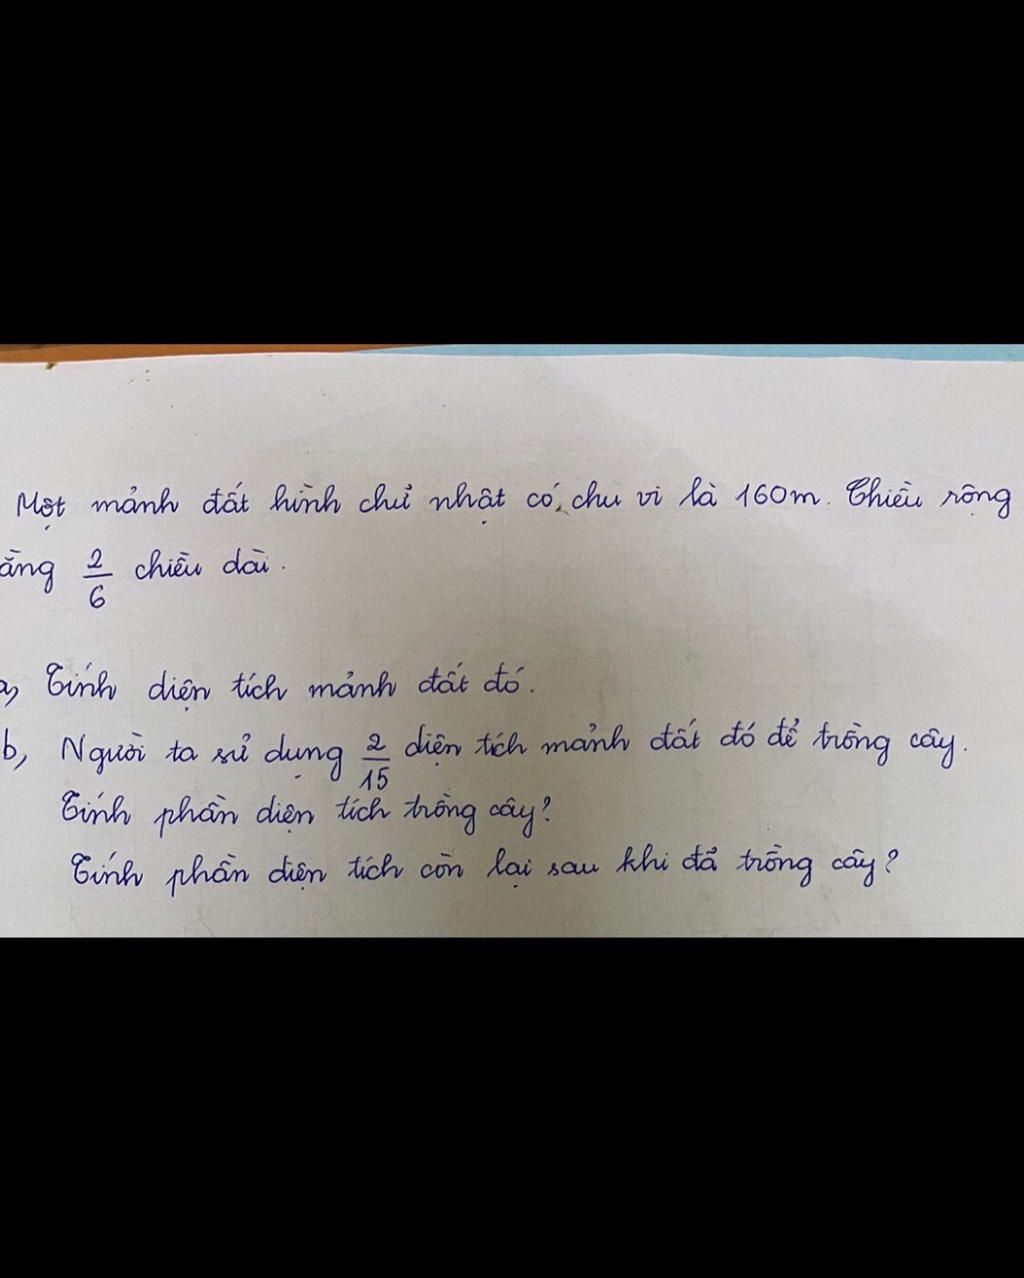 Một mảnh đất hình chữ nhật có, chu vi là 160m. Chiều rộng
ằng 2/6 chiều dài.
a, Tính diện tích mảnh đất đó.
b, Người ta sử dụng 2/15 diện tích mảnh đất đó để trồng cây.
Tính phần diện tích trồng cây?
Tính phần diện tích còn lại sau khi đã trồng cây?